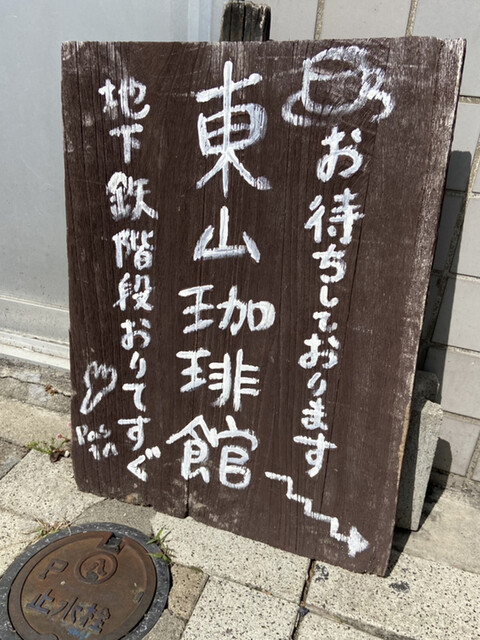 お待ちしております
東山珈琲館
地下鉄階段おりてすぐ
P
止水栓